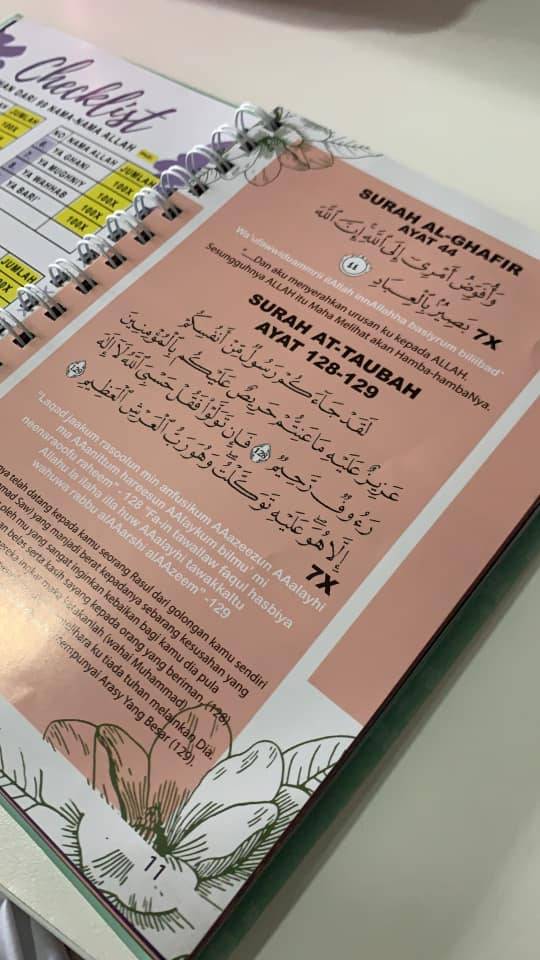 Checklist
DARI 99 NAMA-NAMA ALLAH
JUMLAH
100X
NO NAMA ALLAH JUMLAH
YA GHANI 100X
YA MUGHNIY 100X
YA WAHHAB 100X
YA BARI' 100X
JUMLAH
100X
SURAH AL-GHAFIR
AYAT 44
وَأُفَوِّضُ أَمْرِىٓ إِلَى ٱللَّهِ إِنَّ ٱللَّهَ
بَصِيرٌۢ بِٱلْعِبَادِ ٤٤
7X
"....Dan aku menyerahkan urusan ku kepada ALLAH.
Sesungguhnya ALLAH itu Maha Melihat akan Hamba-hambaNya.
SURAH AT-TAUBAH
AYAT 128-129
لَقَدْ جَآءَكُمْ رَسُولٌ مِّنْ أَنفُسِكُمْ
عَزِيزٌ عَلَيْهِ مَا عَنِتُّمْ حَرِيصٌ عَلَيْكُم بِٱلْمُؤْمِنِينَ
رَءُوفٌ رَّحِيمٌ ١٢٨ فَإِن تَوَلَّوْا۟ فَقُلْ حَسْبِىَ ٱللَّهُ لَآ إِلَٰهَ
إِلَّا هُوَ عَلَيْهِ تَوَكَّلْتُ وَهُوَ رَبُّ ٱلْعَرْشِ ٱلْعَظِيمِ ١٢٩
7X
"Laqad jaakum rasoolun min anfusikum AAazeezun AAalayhi
ma AAanittum hareesun AAlaykum bilmu' mi
neenaraoofu raheem" - 128 "Fa-in tawallaw faqul hasbiya
Allahu la ilaha illa huw AAalayhi tawakkaltu
wahuwa rabbu alAAarshi alAAzeem" -129
telah datang kepada kamu seorang Rasul dari golongan kamu sendiri
Saw) yang menjadi berat kepadanya sebarang kesusahan yang
oleh mu yang sangat inginkan kebaikan bagi kamu dia pula
belas serta kasih sayang kepada orang yang beriman. (128)
ingkar maka katakanlah (wahai Muhammad)
ku tiada tuhan melainkan Dia.
Arasy Yang Besar (129).
11